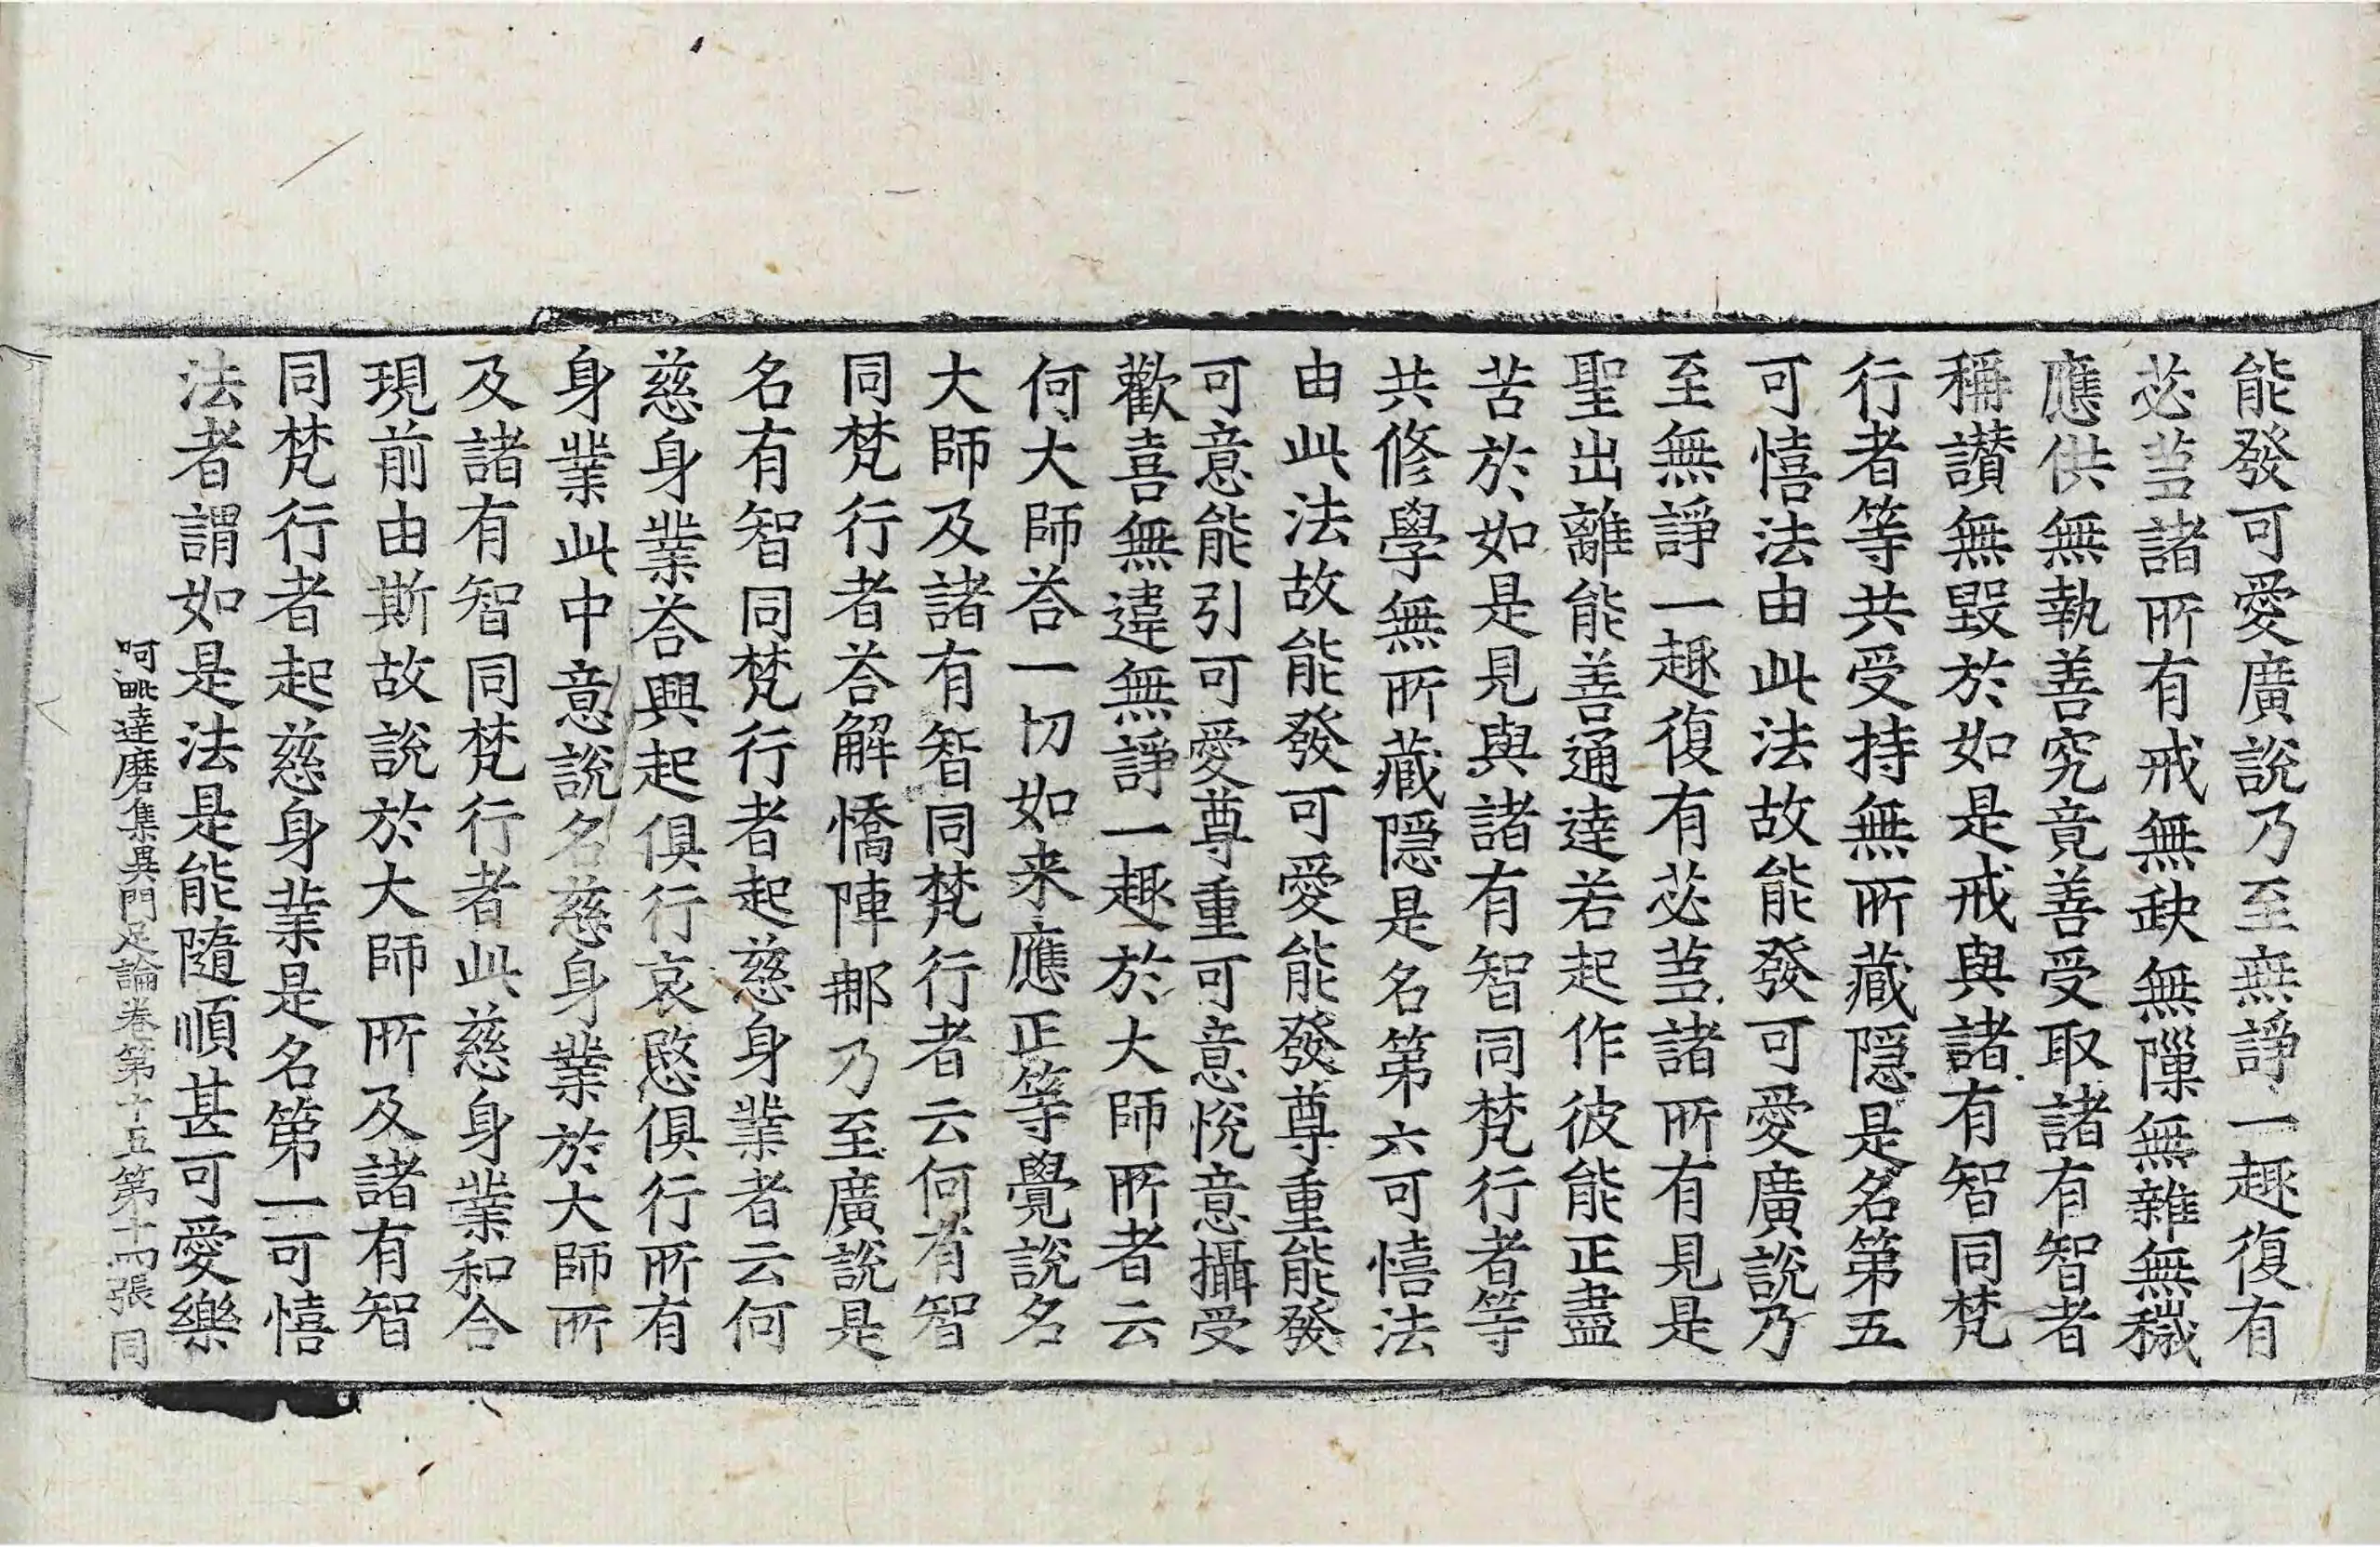 能發可愛廣說乃至無諍一趣復有
苾芻諸所有戒無缺無隟無雜無穢
應供無執善究竟善受取諸有智者
稱讃無毀於如是戒與諸有智同梵
行者等共受持無所藏隱是名第五
可憘法由此法故能發可愛廣說乃
至無諍一趣復有苾芻諸所有見是
聖出離能善通達若起作彼能正盡
苦於如是見與諸有智同梵行者等
共修學無所藏隱是名第六可憘法
由此法故能發可愛能發尊重能發
可意能引可愛尊重可意悅意攝受
歡喜無違無諍一趣於大師所者云
何大師荅一切如来應正等覺說名
大師及諸有智同梵行者云何有智
同梵行者荅解憍陣那乃至廣說是
名有智同梵行者起慈身業者云何
慈身業荅興起俱行哀愍俱行所有
身業此中意說名慈身業於大師所
及諸有智同梵行者此慈身業和合
現前由斯故說於大師所及諸有智
同梵行者起慈身業是名第一可憘
法者謂如是法是能隨順甚可愛樂
阿毗達磨集異門足論卷第十五第十四張 同